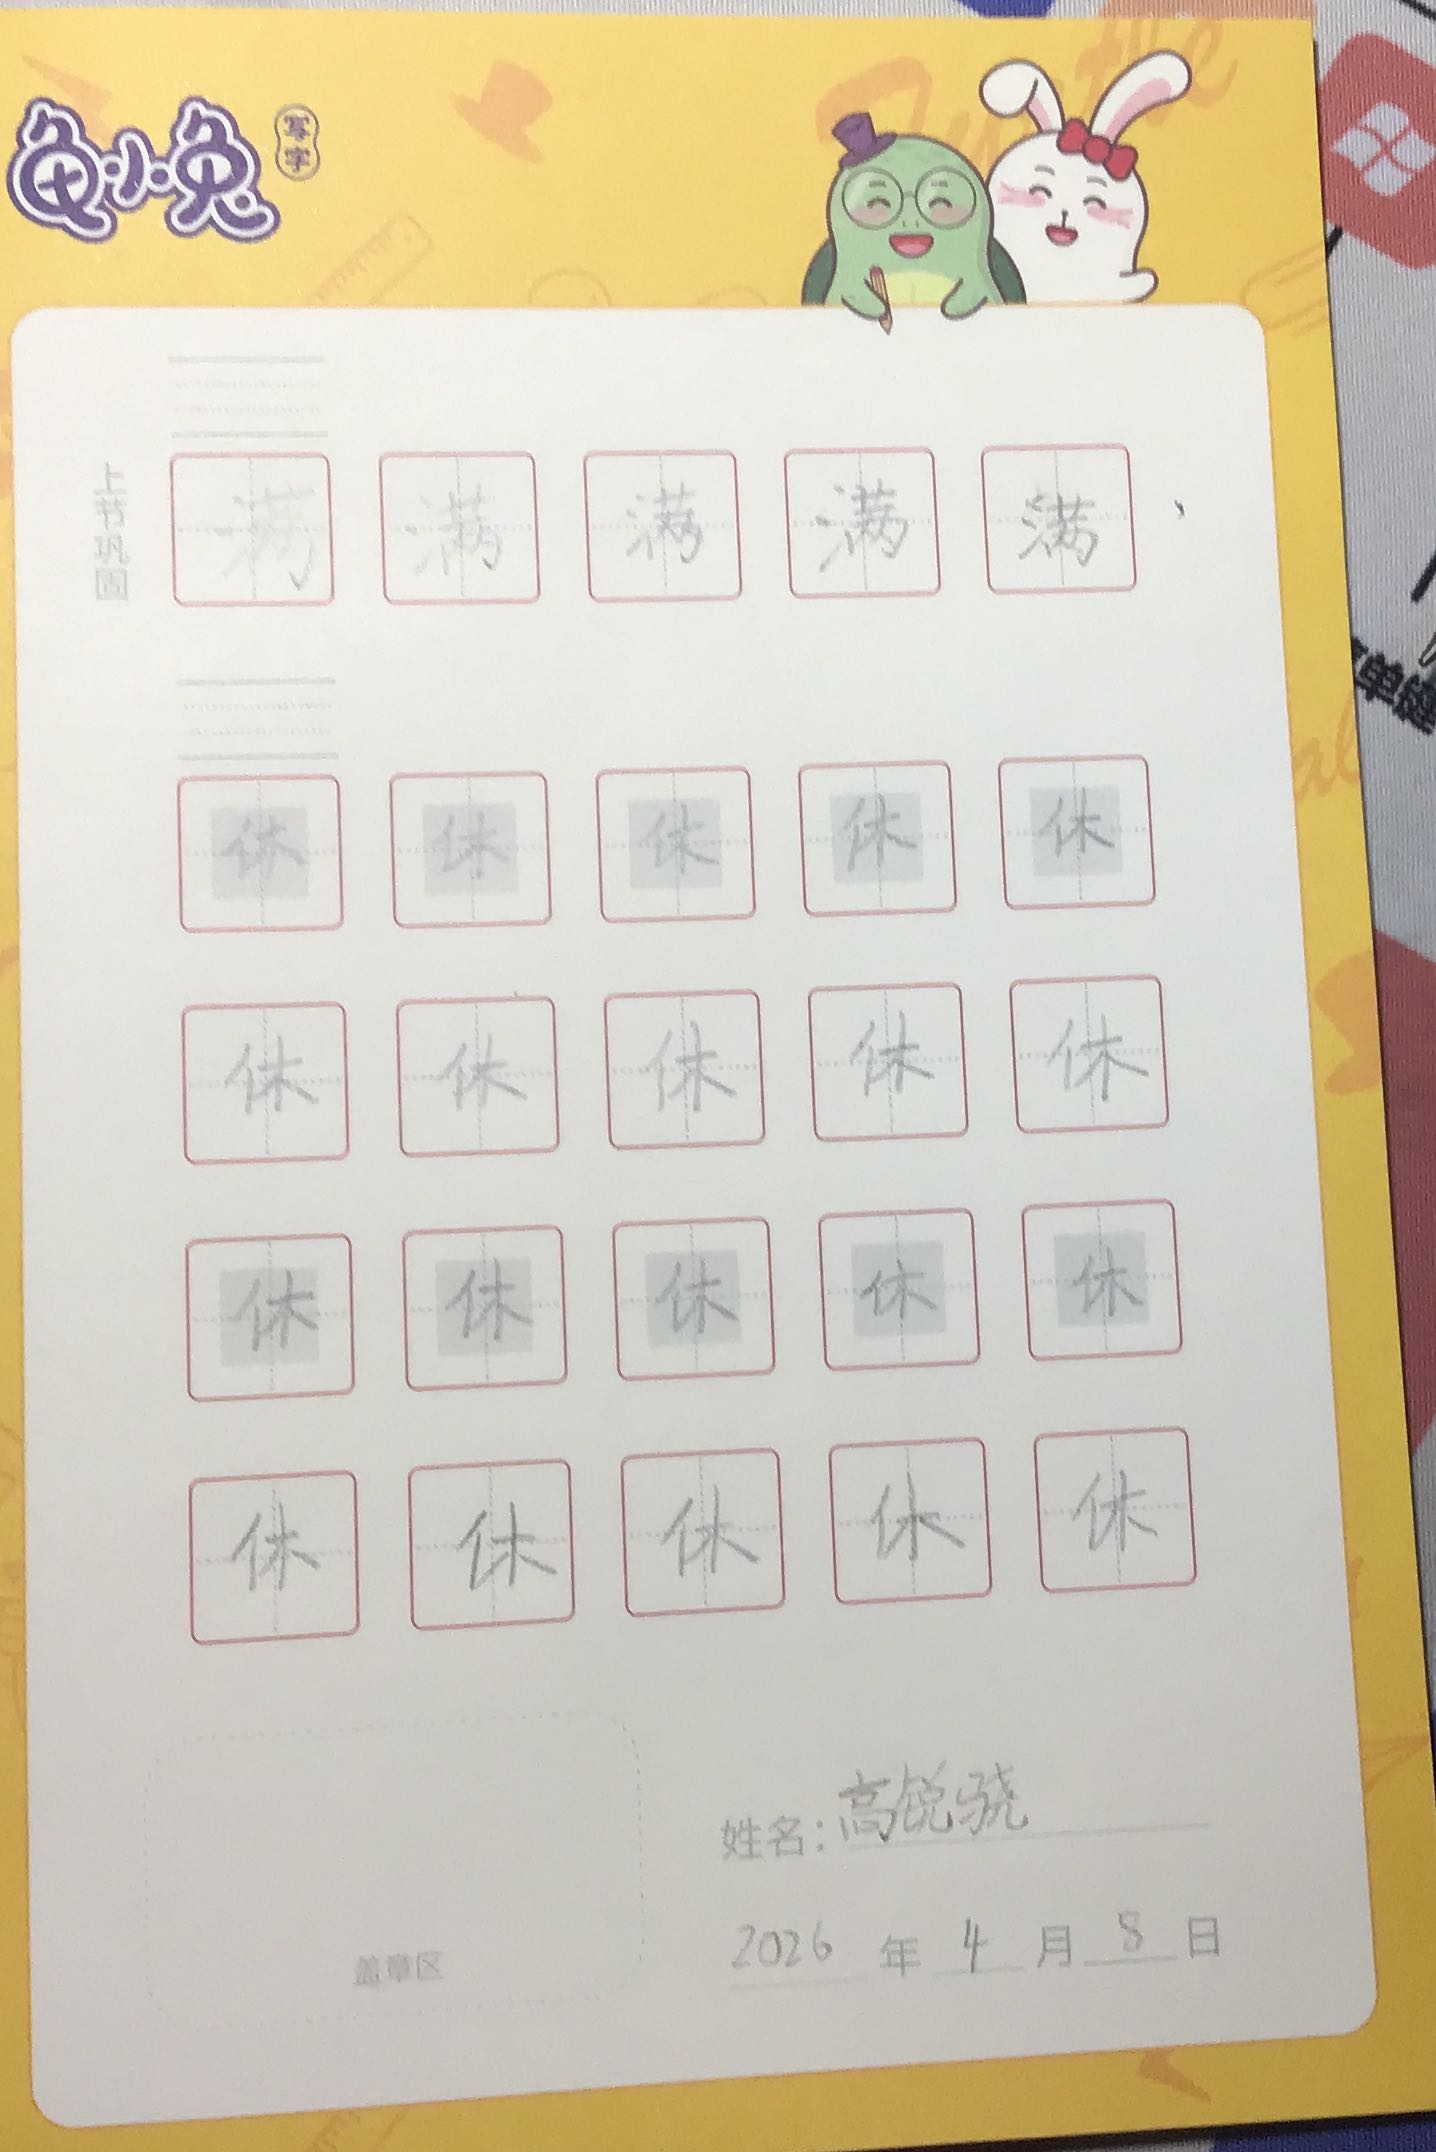 龟小兔
写字
上节巩固
满 满 满 满 满
休 休 休 休 休
休 休 休 休 休
休 休 休 休 休
休 休 休 休 休
姓名：高锐骁
2026 年 4 月 8 日
盖章区
单键